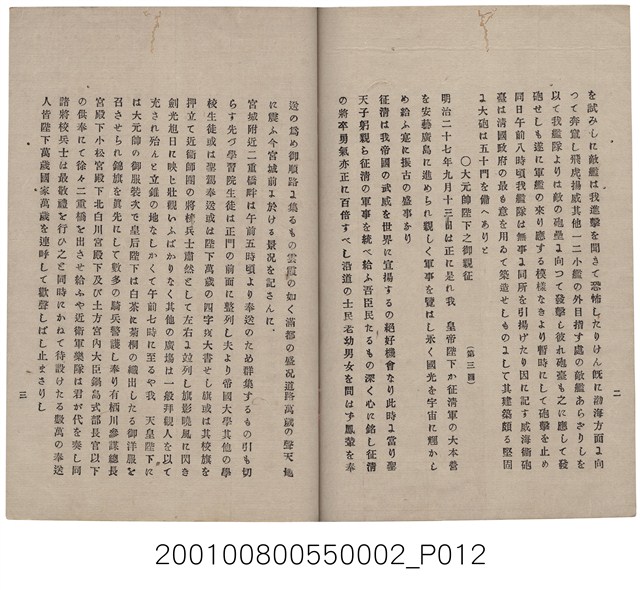 を試みしに敵艦は我進擊を聞きて恐怖したりけん既に渤海方面ゟ向
つて奔竄し飛虎揚威其他一二小艦の外目指す處の敵艦あらざりしを
以て我艦隊よりは敵の砲壘ゟ向つて發擊し彼れ砲臺も之に應して發
砲せしも遂に軍艦の來り應する模樣なきより暫時にして砲擊を止め
同日午前八時頃我艦隊は無事ゟ同所を引揚げたり因に記す威海衛砲
臺は淸國政府の最も意を用ゐて築造せしものゟして其建築頗る堅固
ゟ大砲は五十門を備へありと
〇大元帥陛下之御親征
(第三圖)
明治二十七年九月十三日は正に是れ我 皇帝陛下か征淸軍の大本營
を安藝廣島に進められ親しく軍事を覽はし永く國光を宇宙に輝かし
め給ふ寔に振古の盛事なり
征淸は我帝國の武威を世界に宣揚するの絕好機會なり此時ゟ當り聖
天子躬親ら征淸の軍事を統べ給ふ吾臣民たるもの深く心に銘し征淸
の將卒勇氣亦正に百倍すべし沿道の士民老幼男女を問はず鳳輦を奉
二
送の爲め御順路ゟ集るもの雲霞の如く滿都の盛況道路萬歲の聲天地
に震ふ今宮城前ゟ於ける景況を記さんに、
宮城附近二重橋附は午前五時頃より奉送のため群集するもの引も切
らす先づ學習院生徒は正門の前面に整列し夫より帝國大學其他の學
校生徒或は聖駕奉送或は陛下萬歲の四字を大書せし旗或は其校旗を
押立て近衛師團の將校兵士肅然として左右ゟ竝列し旗影曉風に閃き
劍光旭日に映し壯觀いふばかりなく其他の廣場は一般拜觀人を以て
充され殆んと立錐の地なしかくて午前七時に至るや我 天皇陛下に
は大元帥の御服裝次で皇后陛下は白茶に菊桐の織出したる御洋服を
召させられ錦旗を眞先にして數多の騎兵警護し奉り有栖川參謀總長
宮殿下小松宮殿下北白川宮殿下及び土方宮內大臣鍋島式部長官以下
の供奉にて徐々二重橋を出させ給ふや近衛軍樂隊は君が代を奏し同
諸將校兵士は最敬禮を行ひ之と同時にかねて待設けたる數萬の奉送
人皆陛下萬歲國家萬歲を連呼して歡聲しばし止まさりし
三
200100800550002_P012